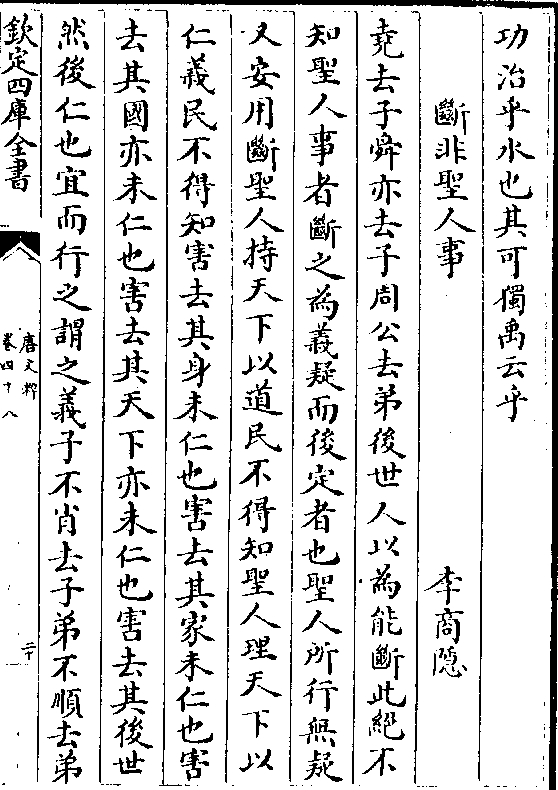 功治乎水也其可獨禹云乎
斷非聖人事 李商隱
堯去子舜亦去子周公去弟後世人以為能斷此絕不
知聖人事者斷之為義疑而後定者也聖人所行無疑
又安用斷聖人持天下以道民不得知聖人理天下以
仁義民不得知害去其身未仁也害去其家未仁也害
去其國亦未仁也害去其天下亦未仁也害去其後世
然後仁也宜而行之謂之義子不肖去子弟不順去弟
欽定四庫全書
唐文粹
卷四十八
二十